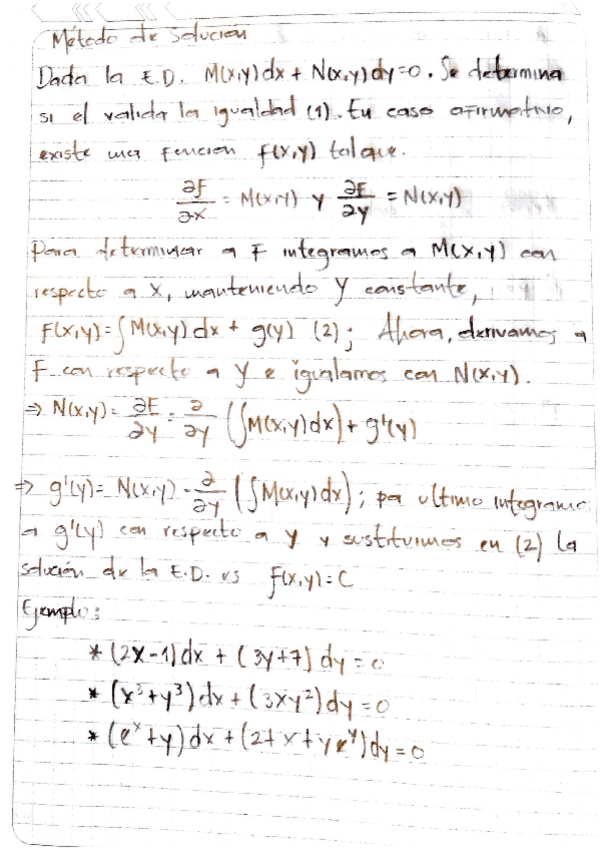 Método de Solución
Dada la E.D. M(x,y)dx + N(x,y)dy=0. Se determina
si el valida la igualdad (1). En caso afirmativo,
existe una función f(x,y) tal que.
∂f/∂x = M(x,y) y ∂F/∂y = N(x,y)
Para determinar a F integramos a M(x,y) con
respecto a x, manteniendo y constante,
f(x,y)=∫M(x,y)dx + g(y) (2); Ahora, derivamos a
F con respecto a y e igualamos con N(x,y).
⇒ N(x,y)= ∂F/∂y = ∂/∂y (∫M(x,y)dx)+ g'(y)
⇒ g'(y)= N(x,y) - ∂/∂y (∫M(x,y)dx); por ultimo integramos
a g'(y) con respecto a y y sustituimos en (2) la
solución de la E.D. es f(x,y)=C
Ejemplo:
* (2x-1)dx + (3y+7)dy=0
* (x³+y³)dx+(3xy²)dy=0
* (eˣ+y)dx+(2+x+yeʸ)dy=0